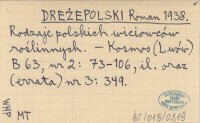 DREŻEPOLSKI Roman 1938.
Rodzaje polskich wiciowców
roślinnych. — Kosmos (Lwów)
B 63, nr 2: 73-106, il. oraz
(errata) nr 3: 349.
WHP
MT